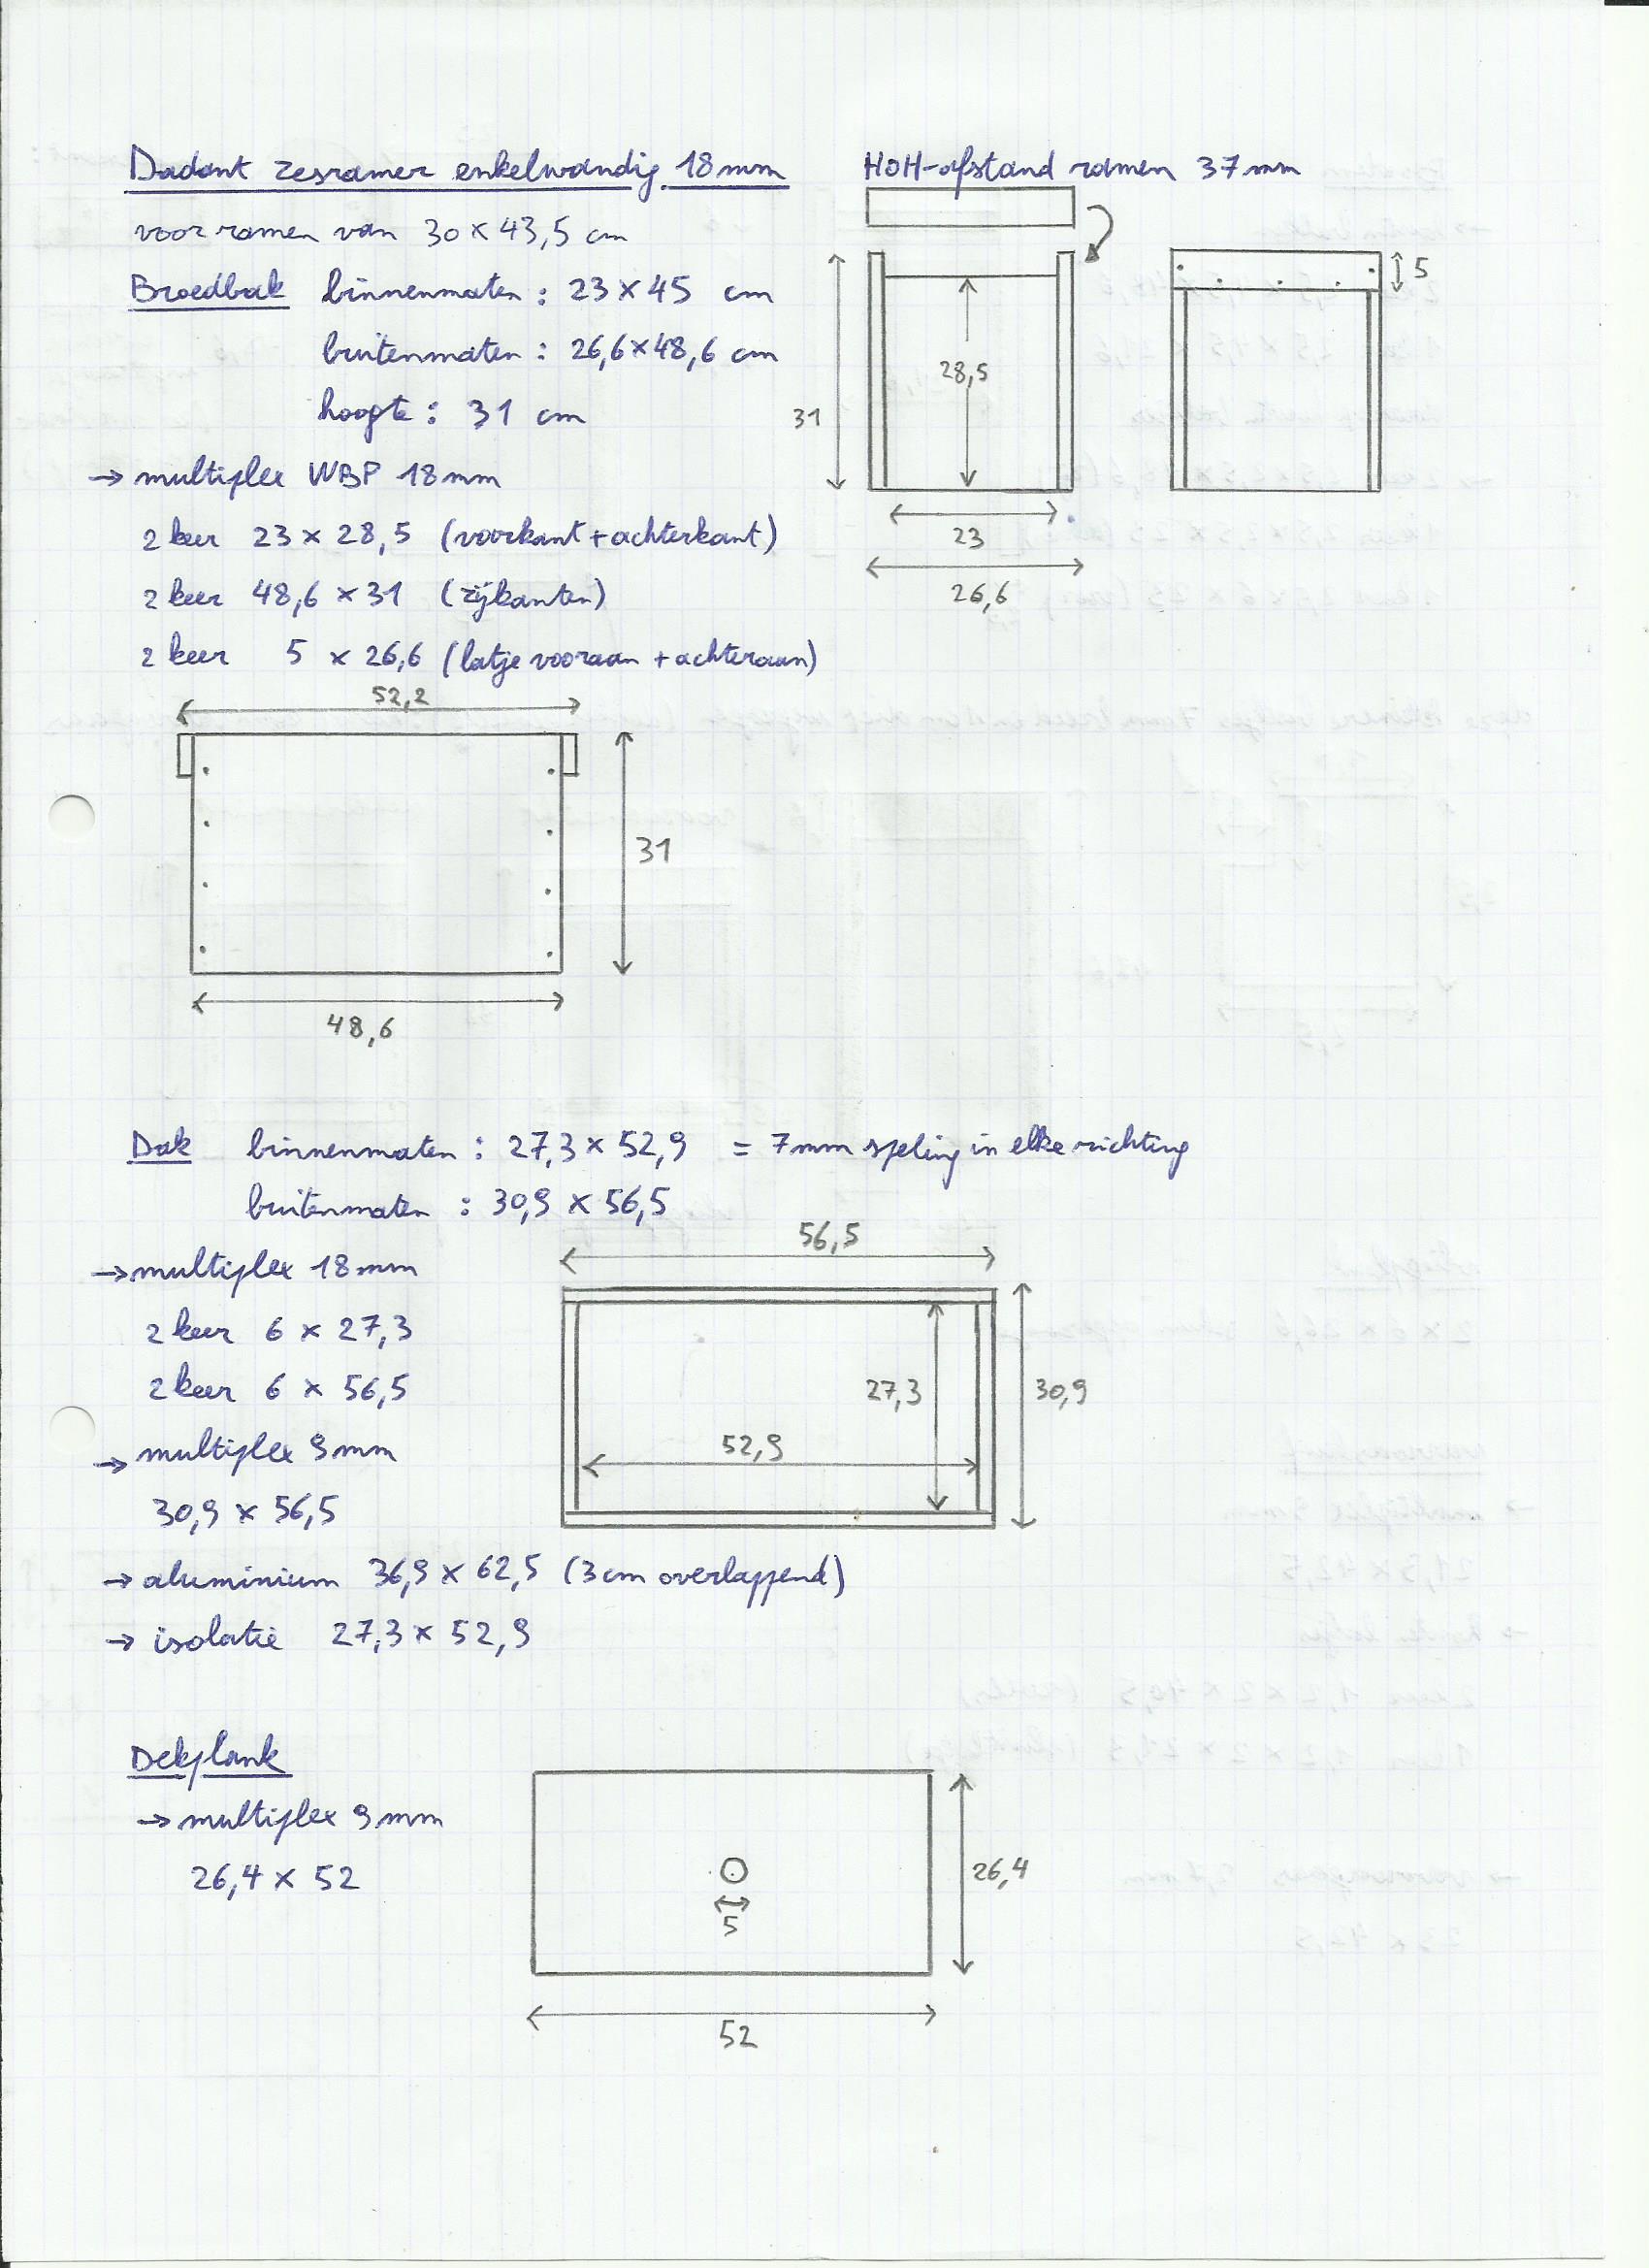 Dadant zesramer enkelwandig 18mm
HOH-afstand ramen 37mm
voor ramen van 30 x 43,5 cm
Broedbak binnenmaten : 23 x 45 cm
buitenmaten : 26,6 x 48,6 cm
hoogte : 31 cm
→ multiplex WBP 18mm
2 keer 23 x 28,5 (voorkant + achterkant)
2 keer 48,6 x 31 (zijkanten)
2 keer 5 x 26,6 (latje vooraan + achteraan)
31
28,5
23
26,6
5
52,2
31
48,6
Dak binnenmaten : 27,3 x 52,9 = 7mm speling in elke richting
buitenmaten : 30,9 x 56,5
→ multiplex 18mm
2 keer 6 x 27,3
2 keer 6 x 56,5
→ multiplex 9mm
30,9 x 56,5
→ aluminium 36,9 x 62,5 (3cm overlappend)
→ isolatie 27,3 x 52,9
56,5
27,3
30,9
52,9
Dekplank
→ multiplex 9mm
26,4 x 52
5
26,4
52